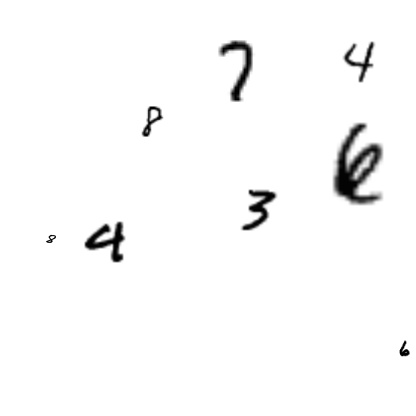 7 4
8
6
3
8 4
6